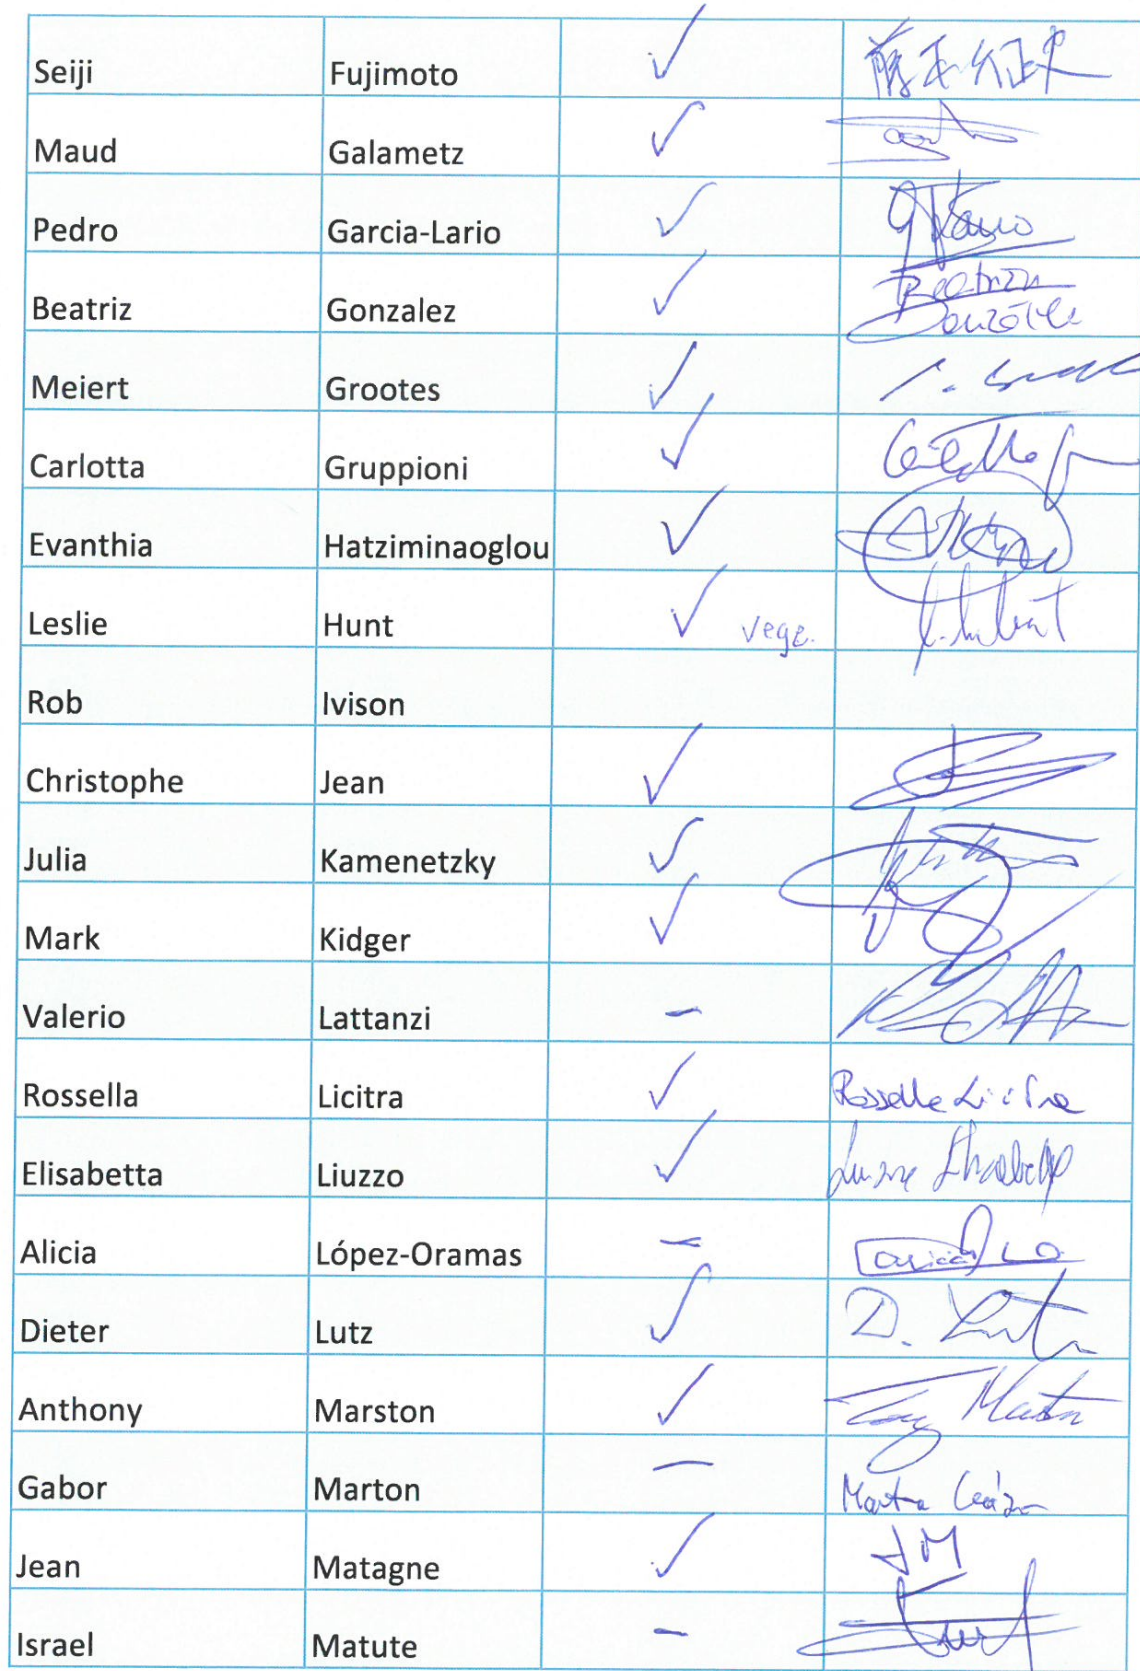 Seiji Fujimoto ✓
Maud Galametz ✓
Pedro Garcia-Lario ✓
Beatriz Gonzalez ✓ Beatriz
González
Meiert Grootes ✓
Carlotta Gruppioni ✓
Evanthia Hatziminaoglou ✓
Leslie Hunt ✓ vege.
Rob Ivison
Christophe Jean ✓
Julia Kamenetzky ✓
Mark Kidger ✓
Valerio Lattanzi –
Rossella Licitra ✓ Rossella Licitra
Elisabetta Liuzzo ✓
Alicia López-Oramas –
Dieter Lutz ✓ D. Lutz
Anthony Marston ✓ Tony Marston
Gabor Marton – Marton Gábor
Jean Matagne ✓ JM
Israel Matute –